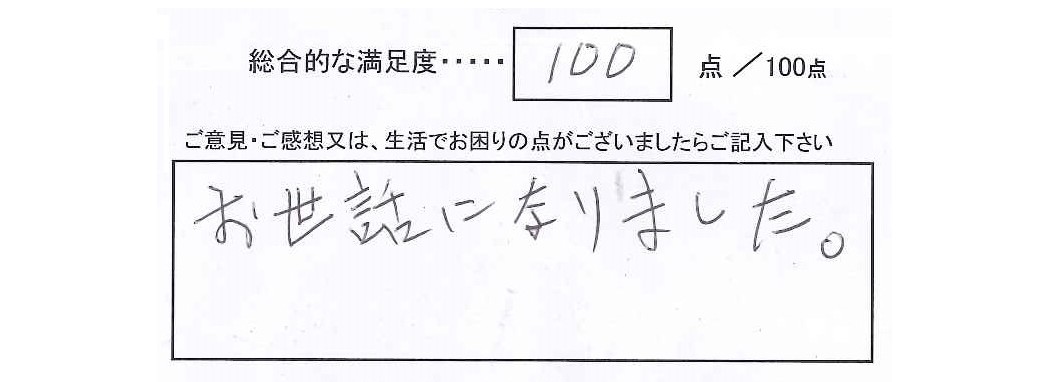 総合的な満足度・・・・・ 100 点 ／100点
ご意見・ご感想又は、生活でお困りの点がございましたらご記入下さい
お世話になりました。